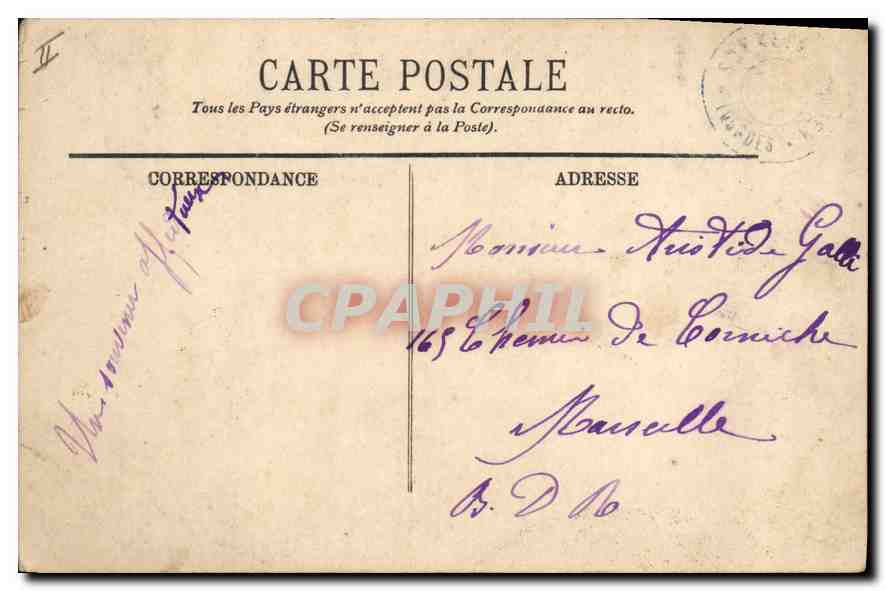 II
CARTE POSTALE
Tous les Pays étrangers n'acceptent pas la Correspondance au recto.
(Se renseigner à la Poste).
CORRESPONDANCE
Un souvenir affectueux
ADRESSE
Monsieur Aristide Galli
165 Chemin de Corniche
Marseille
B. D R
CPAPHIL